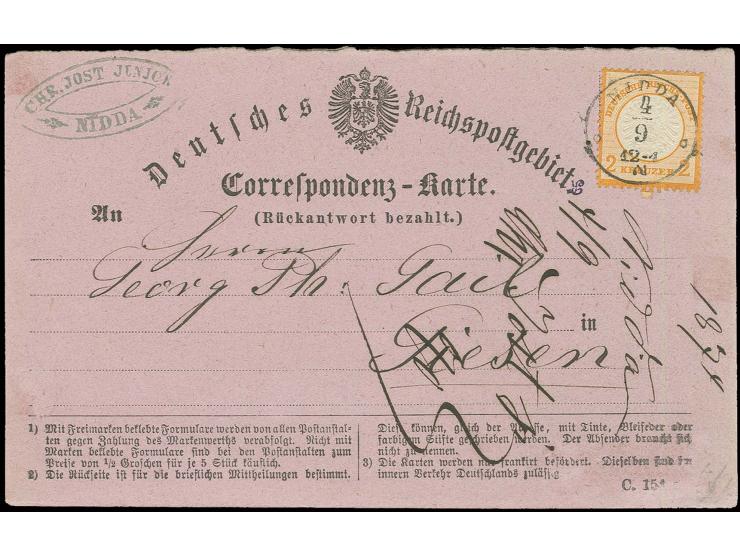 CHR. JOST JUNIOR
NIDDA
Deutsches Reichspostgebiet.
NIDDA
4
9
12-1
N
2 KREUZER 2
Correspondenz-Karte.
(Rückantwort bezahlt.)
An
Herrn
Georg Ph. Gail
in
Giesen
4/9
Nidda
1) Mit Freimarken beklebte Formulare werden von allen Postanstal-
ten gegen Zahlung des Markenwerths verabfolgt. Nicht mit
Marken beklebte Formulare sind bei den Postanstalten zum
Preise von ½ Groschen für je 5 Stück käuflich.
2) Die Rückseite ist für die brieflichen Mittheilungen bestimmt.
Diese können, gleich der Adresse, mit Tinte, Bleifeder oder
farbigem Stifte geschrieben werden. Der Absender braucht sich
nicht zu nennen.
3) Die Karten werden nur frankirt befördert. Dieselben sind im
innern Verkehr Deutschlands zulässig
C. 154